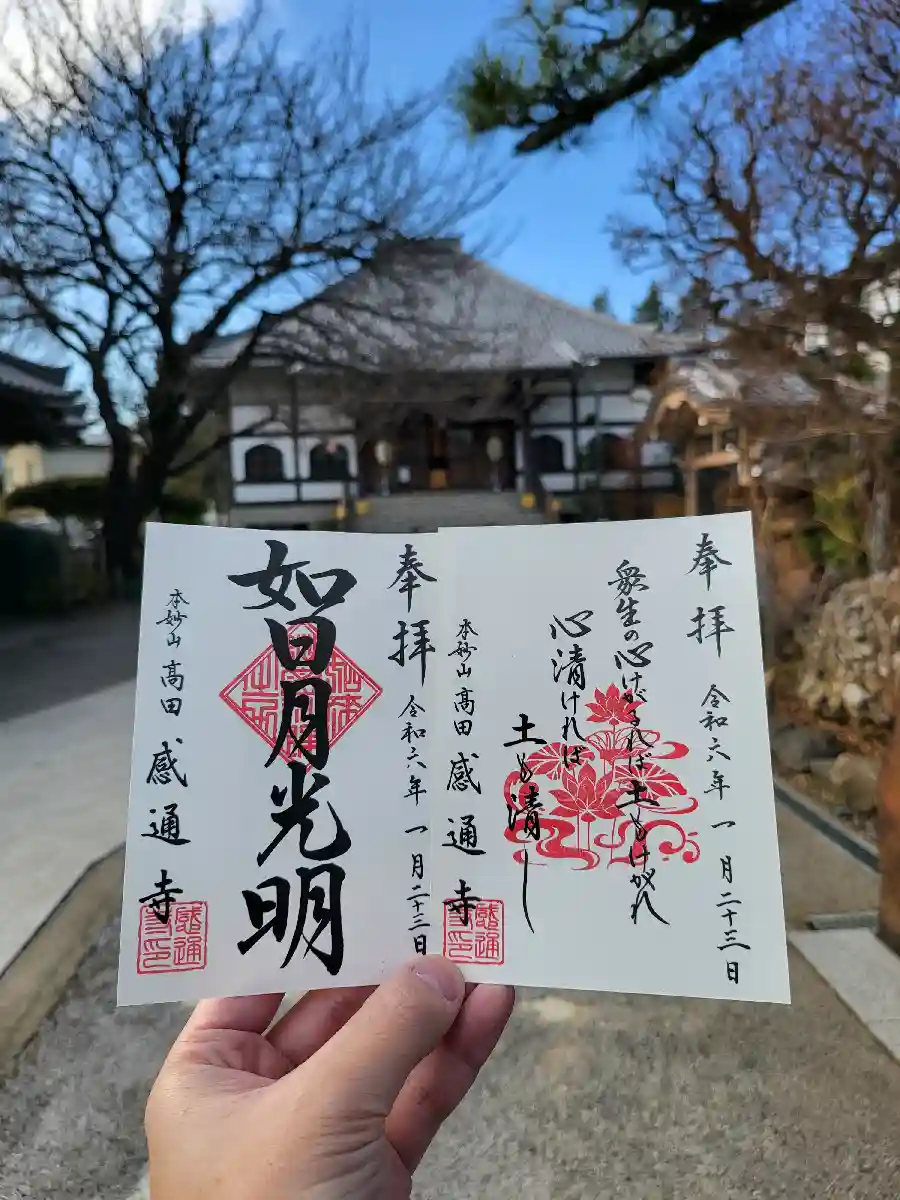 奉拝
令和六年 一月二十三日
衆生の心けがるれば土もけがれ
心清ければ
土も清し
本妙山 高田 感通寺
感通寺印
奉拝
令和六年 一月二十三日
如日月光明
本妙山 高田 感通寺
感通寺印